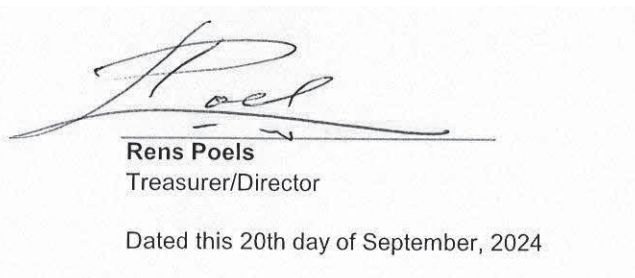 Poel
Rens Poels
Treasurer/Director
Dated this 20th day of September, 2024